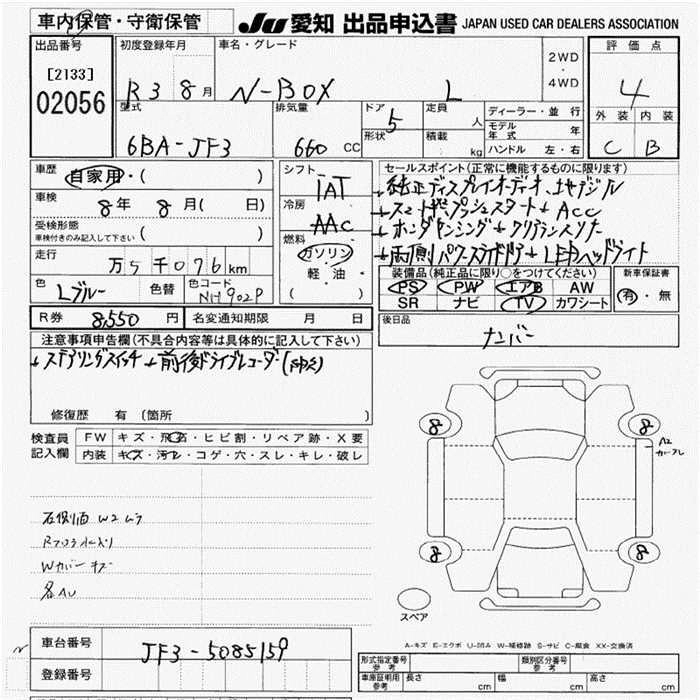 車内保管・守衛保管
JU 愛知 出品申込書 JAPAN USED CAR DEALERS ASSOCIATION
出品番号
[2133]
02056
初度登録年月
R3 8月
車名・グレード
N-BOX L
2WD
・
4WD
評価点
4
外装 内装
C B
型式
6BA-JF3
排気量
660 CC
ドア 5
形状
定員 人
積載 kg
ディーラー・並行
モデル年式 年
ハンドル 左・右
車歴
自家用・( )
車検
8年 8月( 日)
受検形態
車検付きのみ記入して下さい ( )
走行
万5千076km
色 Lブルー 色替 色コード NH902P
シフト
IAT
冷房
AAC
燃料
ガソリン
軽・油
( )
セールスポイント(正常に機能するものに限ります)
↓純正ディスプレイオーディオ↓地デジル
↓スマートキープッシュスタート↓ACC
↓ホンダセンシング↓クリアランスソナー
↓両側パワースライドドア↓LEDヘッドライト
装備品(純正品に限り○をつけてください)
PS PW エアB AW
SR ナビ TV カワシート
新車保証書
有・無
R券 8,550円 名変通知期限 月 日
後日品
ナンバー
注意事項申告欄(不具合内容等は具体的に記入して下さい)
↓ステアリングスイッチ↓前後ドライブレコーダー(
修復歴 有(箇所 )
検査員記入欄
FW キズ・飛石・ヒビ割・リペア跡・X要
内装 キズ・汚レ・コゲ・穴・スレ・キレ・破レ
右側面 W2ムラ
Wカバーキズ
各AU
8
8
8
8
A2
スペア
A-キズ E-エクボ U-凹み W-補修跡 S-サビ C-腐食 XX-交換済
車台番号 JF3-5085159
登録番号
型式指定番号 参考
類別区分番号 参考
車庫証明用 参考 長さ cm 幅 cm 高さ cm